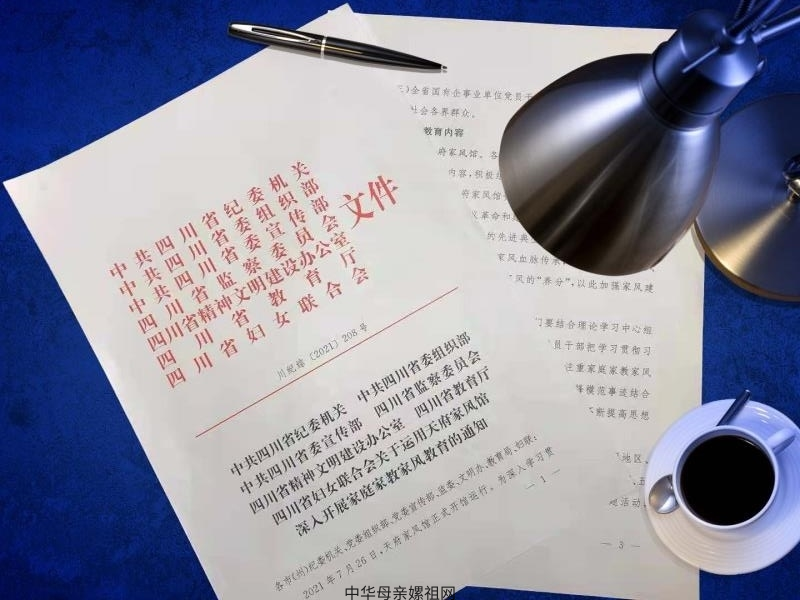 中共四川省纪委机关
中共四川省委组织部
中共四川省委宣传部
四川省监察委员会
四川省精神文明建设办公室
四川省教育厅
四川省妇女联合会
文件
〔2021〕208号
中共四川省纪委机关 中共四川省委组织部
中共四川省委宣传部 四川省监察委员会
四川省精神文明建设办公室 四川省教育厅
四川省妇女联合会关于运用天府家风馆
深入开展家庭家教家风教育的通知
各市(州)纪委机关、党委组织部、党委宣传部、监委、文明办、教育局、妇联:
2021年7月26日,天府家风馆正式开馆运行。为深入学习贯
— 1 —
)全省国有企事业单位党员干
社会各界群众。
教育内容
府家风馆。各
内容,积极组
府家风馆
义革命和
的先进典
家风血脉传承
风的“养分”,以此加强家风建
门要结合理论学习中心组
员干部把学习贯彻习
注重家庭家教家风
模范事迹结合
断提高思想
地区、
活动、
— 3 —
中华母亲嫘祖网